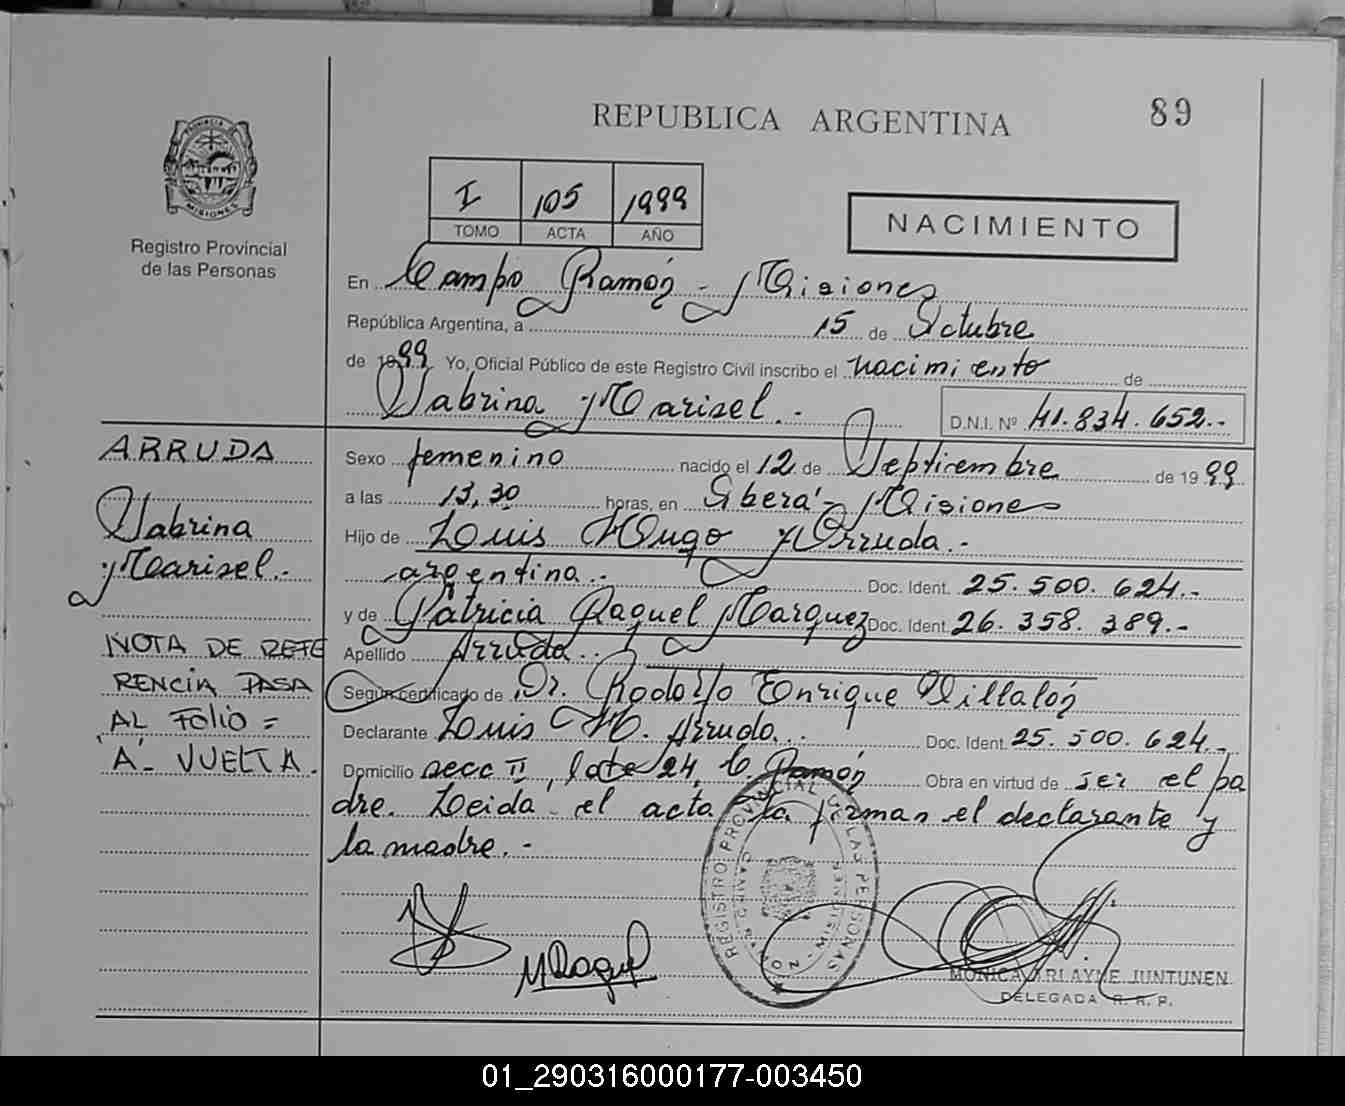 REPUBLICA ARGENTINA
89
PROVINCIA DE
MISIONES
Registro Provincial
de las Personas
I 105 1999
TOMO ACTA AÑO
NACIMIENTO
En Campo Ramón - Misiones
República Argentina, a 15 de Octubre
de 1999 Yo, Oficial Público de este Registro Civil inscribo el nacimiento de
Sabrina Marisel.-
D.N.I. Nº 41.834.652.-
ARRUDA
Sabrina
Marisel.-
NOTA DE REFE
RENCIA PASA
AL FOLIO =
"A"- VUELTA.
Sexo femenino nacido el 12 de Septiembre de 1999
a las 13,30 horas, en Oberá - Misiones
Hijo de Luis Hugo Arruda.-
argentino.- Doc. Ident. 25.500.624.-
y de Patricia Raquel Marquez Doc. Ident. 26.358.389.-
Apellido Arruda..
Según certificado de Dr. Rodolfo Enrique Villalón
Declarante Luis H. Arruda... Doc. Ident. 25.500.624.-
Domicilio secc II, lote 24, C. Ramón Obra en virtud de ser el pa
dre. Leída el acta la firman el declarante y
la madre.-
MRaquel
REGISTRO PROVINCIAL DE LAS PERSONAS
MISIONES
MONICA ARLAYNE JUNTUNEN
DELEGADA R. R. P.
01_290316000177-003450